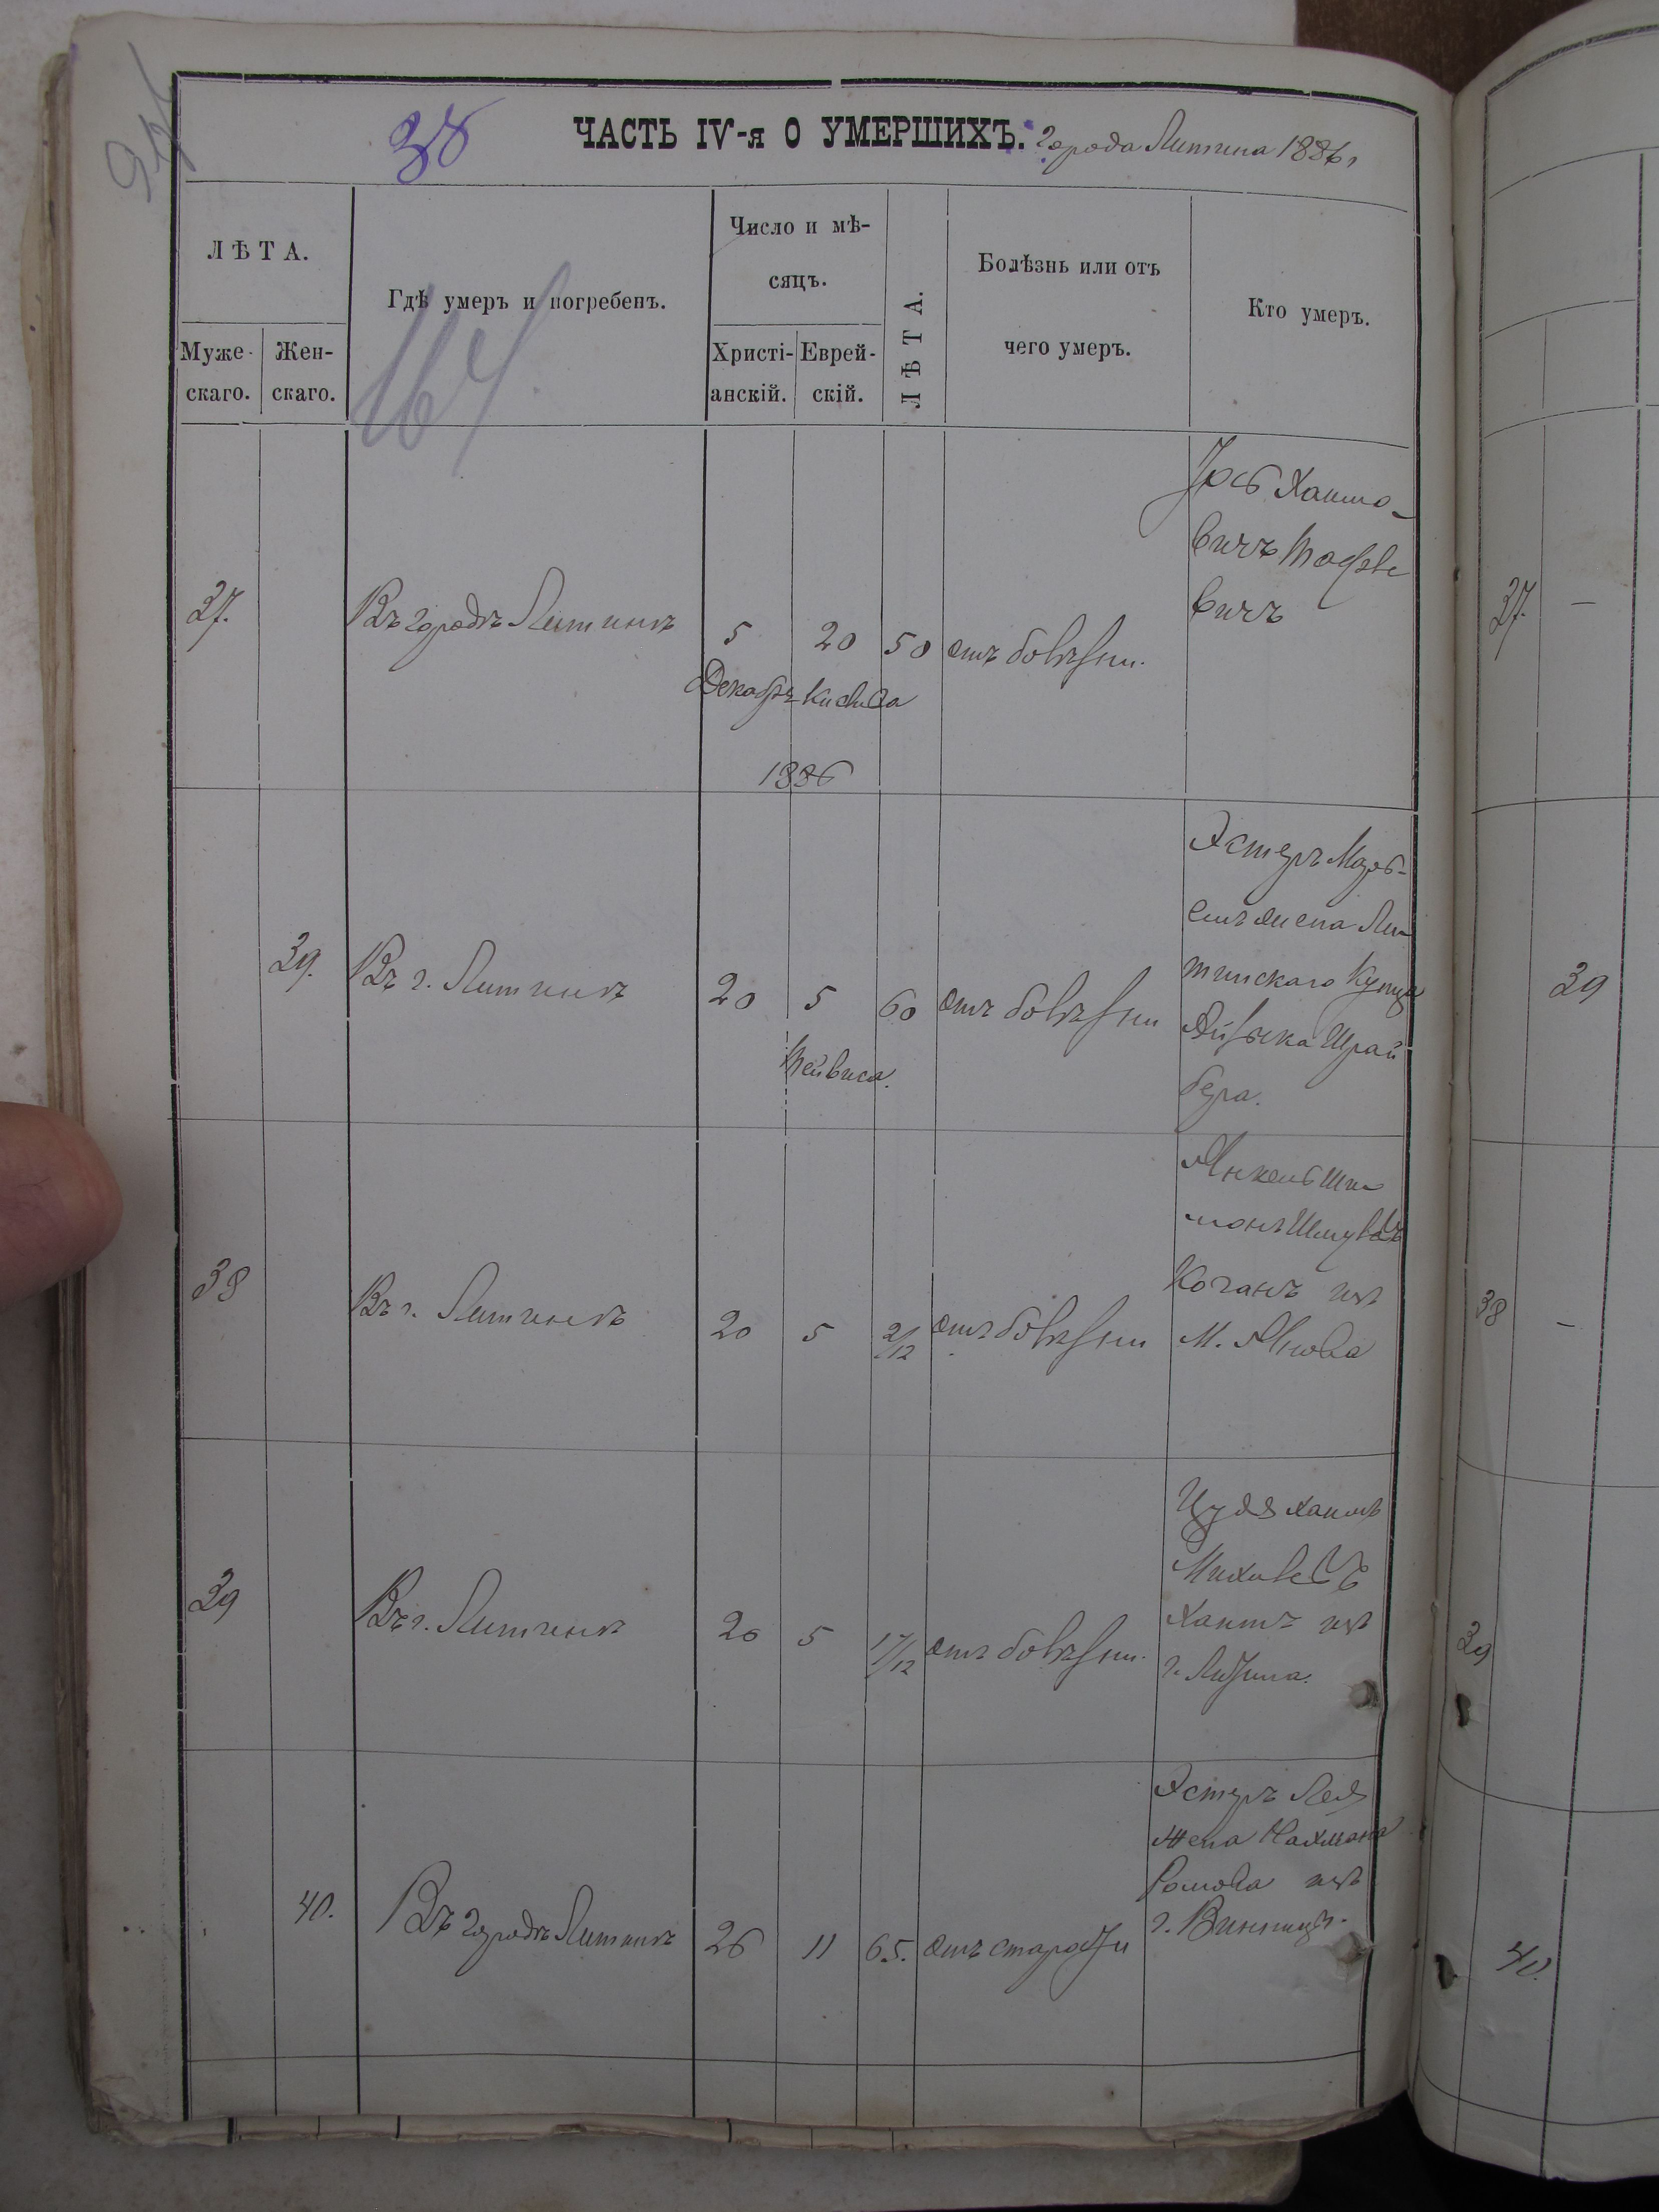 38
ЧАСТЬ IV-я О УМЕРШИХЪ. города Литина 1886 г
ЛѢТА.
Муже-
скаго.
Жен-
скаго.
Гдѣ умеръ и погребенъ.
164
Число и мѣ-
сяцъ.
Христі-
анскій.
Еврей-
скій.
ЛѢТА.
Болѣзнь или отъ
чего умеръ.
Кто умеръ.
37.
Въ городѣ Литинѣ
5
Декабрь
20
Кислива
1886
50
отъ болѣзни.
Хаимо-
вичъ
вичъ
39.
Въ г. Литинѣ
20
5
Тейвиса.
60
отъ болѣзни
Эстеръ
жена Ли-
тинскаго Купца
Айзыка Шрай
бера.
38
Въ г. Литинѣ
20
5
2/12
отъ болѣзни
Янкель Ши-
монъ
Коганъ изъ
М. Янова
39
Въ г. Литинѣ
20
5
17/12
отъ болѣзни.
Хаимъ
изъ
г. Литина.
40.
Въ городѣ Литинѣ
26
11
65.
отъ старости
Эстеръ Лея
жена Нахмана
изъ
г. Винницы.
37. —
39
38 —
39
40.